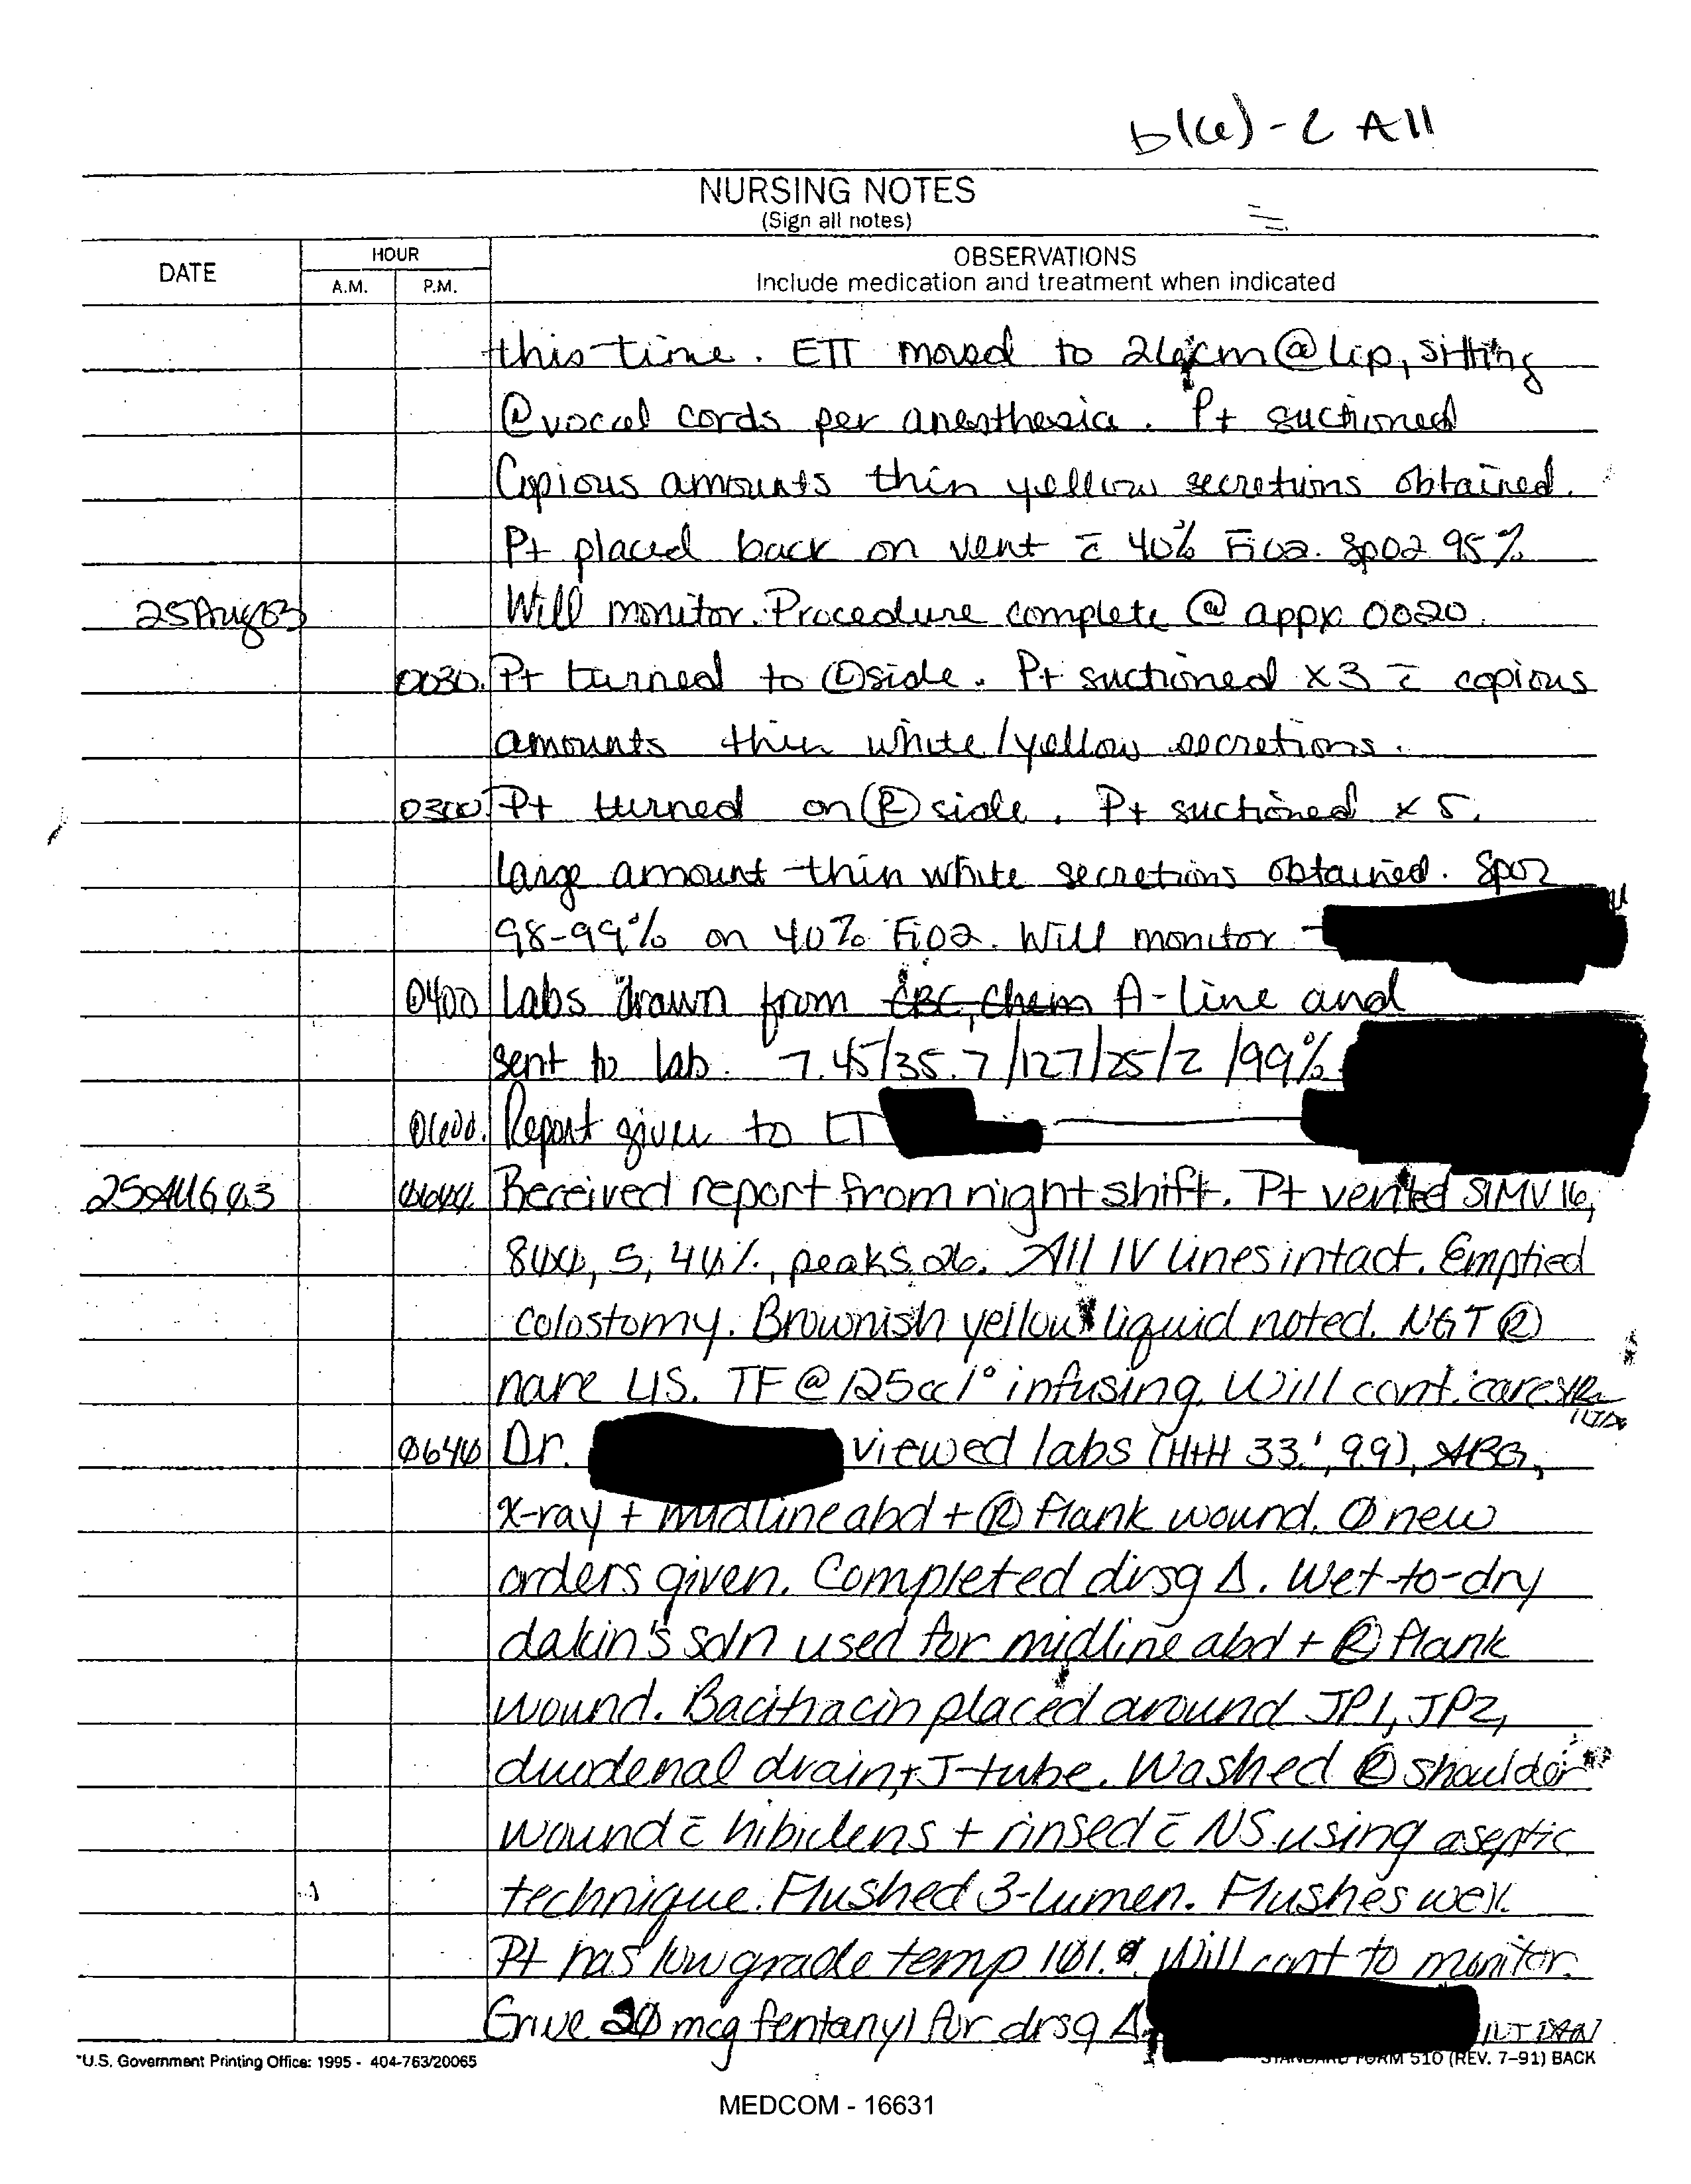 b(6)-2 All
NURSING NOTES
(Sign all notes)
DATE HOUR OBSERVATIONS
A.M. P.M. Include medication and treatment when indicated
this time. ETT moved to 26cm @ lip, sitting
@ vocal cords per anesthesia. Pt suctioned
Copious amounts thin yellow secretions obtained.
Pt placed back on vent c̄ 40% FiO2. SpO2 95%
25Aug03 Will monitor. Procedure complete @ appx 0020.
0030. Pt turned to Ⓛ side. Pt suctioned x3 c̄ copious
amounts thin white/yellow secretions.
0300 Pt turned on Ⓡ side. Pt suctioned x 5.
large amount thin white secretions obtained. SpO2
98-99% on 40% FiO2. Will monitor
0400 Labs drawn from CBC, Chem A-line and
sent to lab. 7.45/35.7/127/25/2/99%
0600. Report given to LT
25AUG03 0600 Received report from night shift. Pt vented SIMV 16,
800, 5, 40%, peaks 26. All IV lines intact. Emptied
colostomy. Brownish yellow liquid noted. NGT Ⓡ
nare LIS. TF @ 125cc/° infusing. Will cont. care
0640 Dr. viewed labs (H+H 33.1, 9.9), ABG,
x-ray + midline abd + Ⓡ flank wound. Ø new
orders given. Completed drsg Δ. Wet-to-dry
dakin's soln used for midline abd + Ⓡ flank
wound. Bacitracin placed around JP1, JP2,
duodenal drain, + J-tube. Washed Ⓡ shoulder
wound c̄ hibiclens + rinsed c̄ NS using aseptic
technique. Flushed 3-lumen. Flushes well.
Pt has low grade temp 101. Will cont to monitor.
Give 20 mcg fentanyl for drsg Δ 1LT
*U.S. Government Printing Office: 1995 - 404-763/20065 STANDARD FORM 510 (REV. 7-91) BACK
MEDCOM - 16631